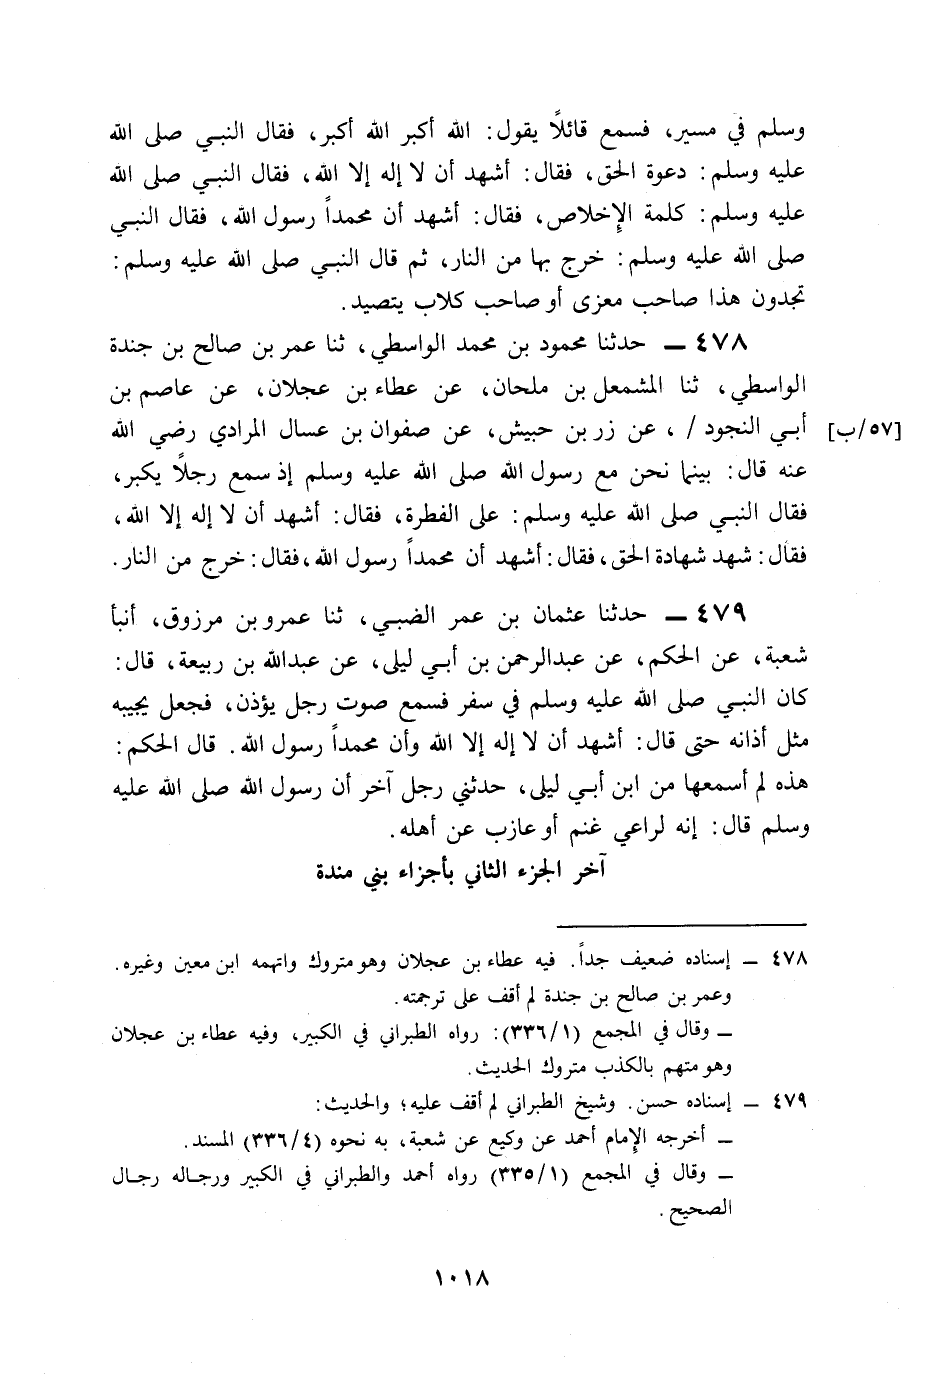 وسلم في مسير، فسمع قائلاً يقول: الله أكبر الله أكبر، فقال النبي صلى الله
عليه وسلم: دعوة الحق، فقال: أشهد أن لا إله إلا الله، فقال النبي صلى الله
عليه وسلم: كلمة الإخلاص، فقال: أشهد أن محمداً رسول الله، فقال النبي
صلى الله عليه وسلم: خرج بها من النار، ثم قال النبي صلى الله عليه وسلم:
تجدون هذا صاحب معزى أو صاحب كلاب يتصيد.
٤٧٨ ـ حدثنا محمود بن محمد الواسطي، ثنا عمر بن صالح بن جندة
الواسطي، ثنا المشمعل بن ملحان، عن عطاء بن عجلان، عن عاصم بن
[٥٧/ب] أبي النجود /، عن زر بن حبيش، عن صفوان بن عسال المرادي رضي الله
عنه قال: بينما نحن مع رسول الله صلى الله عليه وسلم إذ سمع رجلاً يكبر،
فقال النبي صلى الله عليه وسلم: على الفطرة، فقال: أشهد أن لا إله إلا الله،
فقال: شهد شهادة الحق، فقال: أشهد أن محمداً رسول الله، فقال: خرج من النار.
٤٧٩ ـ حدثنا عثمان بن عمر الضبي، ثنا عمرو بن مرزوق، أنبأ
شعبة، عن الحكم، عن عبدالرحمن بن أبي ليلى، عن عبدالله بن ربيعة، قال:
كان النبي صلى الله عليه وسلم في سفر فسمع صوت رجل يؤذن، فجعل يجيبه
مثل أذانه حتى قال: أشهد أن لا إله إلا الله وأن محمداً رسول الله. قال الحكم:
هذه لم أسمعها من ابن أبي ليلى، حدثني رجل آخر أن رسول الله صلى الله عليه
وسلم قال: إنه لراعي غنم أو عازب عن أهله.
آخر الجزء الثاني بأجزاء بني مندة
٤٧٨ ـ إسناده ضعيف جداً. فيه عطاء بن عجلان وهو متروك واتهمه ابن معين وغيره.
وعمر بن صالح بن جندة لم أقف على ترجمته.
ـ وقال في المجمع (٣٣٦/١): رواه الطبراني في الكبير، وفيه عطاء بن عجلان
وهو متهم بالكذب متروك الحديث.
٤٧٩ ـ إسناده حسن. وشيخ الطبراني لم أقف عليه؛ والحديث:
ـ أخرجه الإمام أحمد عن وكيع عن شعبة، به نحوه (٣٣٦/٤) المسند.
ـ وقال في المجمع (٣٣٥/١) رواه أحمد والطبراني في الكبير ورجاله رجال
الصحيح.
١٠١٨